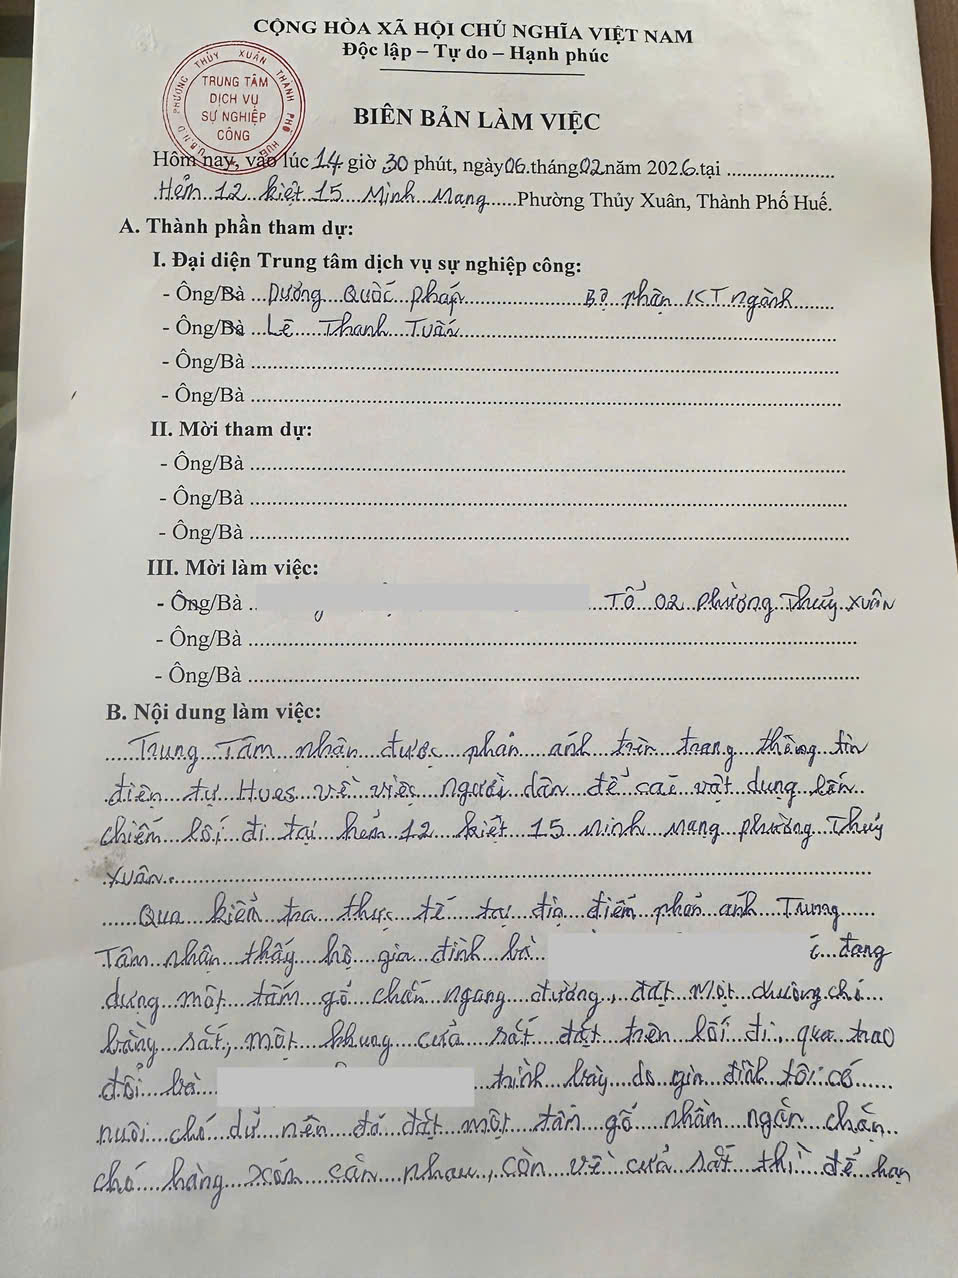 CỘNG HÒA XÃ HỘI CHỦ NGHĨA VIỆT NAM
Độc lập – Tự do – Hạnh phúc
U.B.N.D PHƯỜNG THỦY XUÂN THÀNH PHỐ HUẾ
TRUNG TÂM
DỊCH VỤ
SỰ NGHIỆP
CÔNG
BIÊN BẢN LÀM VIỆC
Hôm nay, vào lúc 14 giờ 30 phút, ngày 06 tháng 02 năm 2026 tại
Hẻm 12 kiệt 15 Minh Mạng Phường Thủy Xuân, Thành Phố Huế.
A. Thành phần tham dự:
I. Đại diện Trung tâm dịch vụ sự nghiệp công:
- Ông/Bà Dương Quốc Pháp Bộ phận KT ngành
- Ông/Bà Lê Thanh Tuấn
- Ông/Bà
- Ông/Bà
II. Mời tham dự:
- Ông/Bà
- Ông/Bà
- Ông/Bà
III. Mời làm việc:
- Ông/Bà Tổ 02 phường Thủy Xuân
- Ông/Bà
- Ông/Bà
B. Nội dung làm việc:
Trung Tâm nhận được phản ánh trên trang thông tin
điện tự Hues về việc người dân để các vật dụng lấn
chiếm lối đi tại hẻm 12 kiệt 15 Minh Mạng phường Thủy
Xuân.
Qua kiểm tra thực tế tại địa điểm phản ánh Trung
Tâm nhận thấy hộ gia đình bà đang
dựng một tấm gỗ chắn ngang đường, đặt một chuồng chó
bằng sắt, một khung cửa sắt đặt trên lối đi, qua trao
đổi bà trình bày do gia đình tôi có
nuôi chó dữ nên đã đặt một tấm gỗ nhằm ngăn chặn
chó hàng xóm cắn nhau, còn về cửa sắt thì để hạn